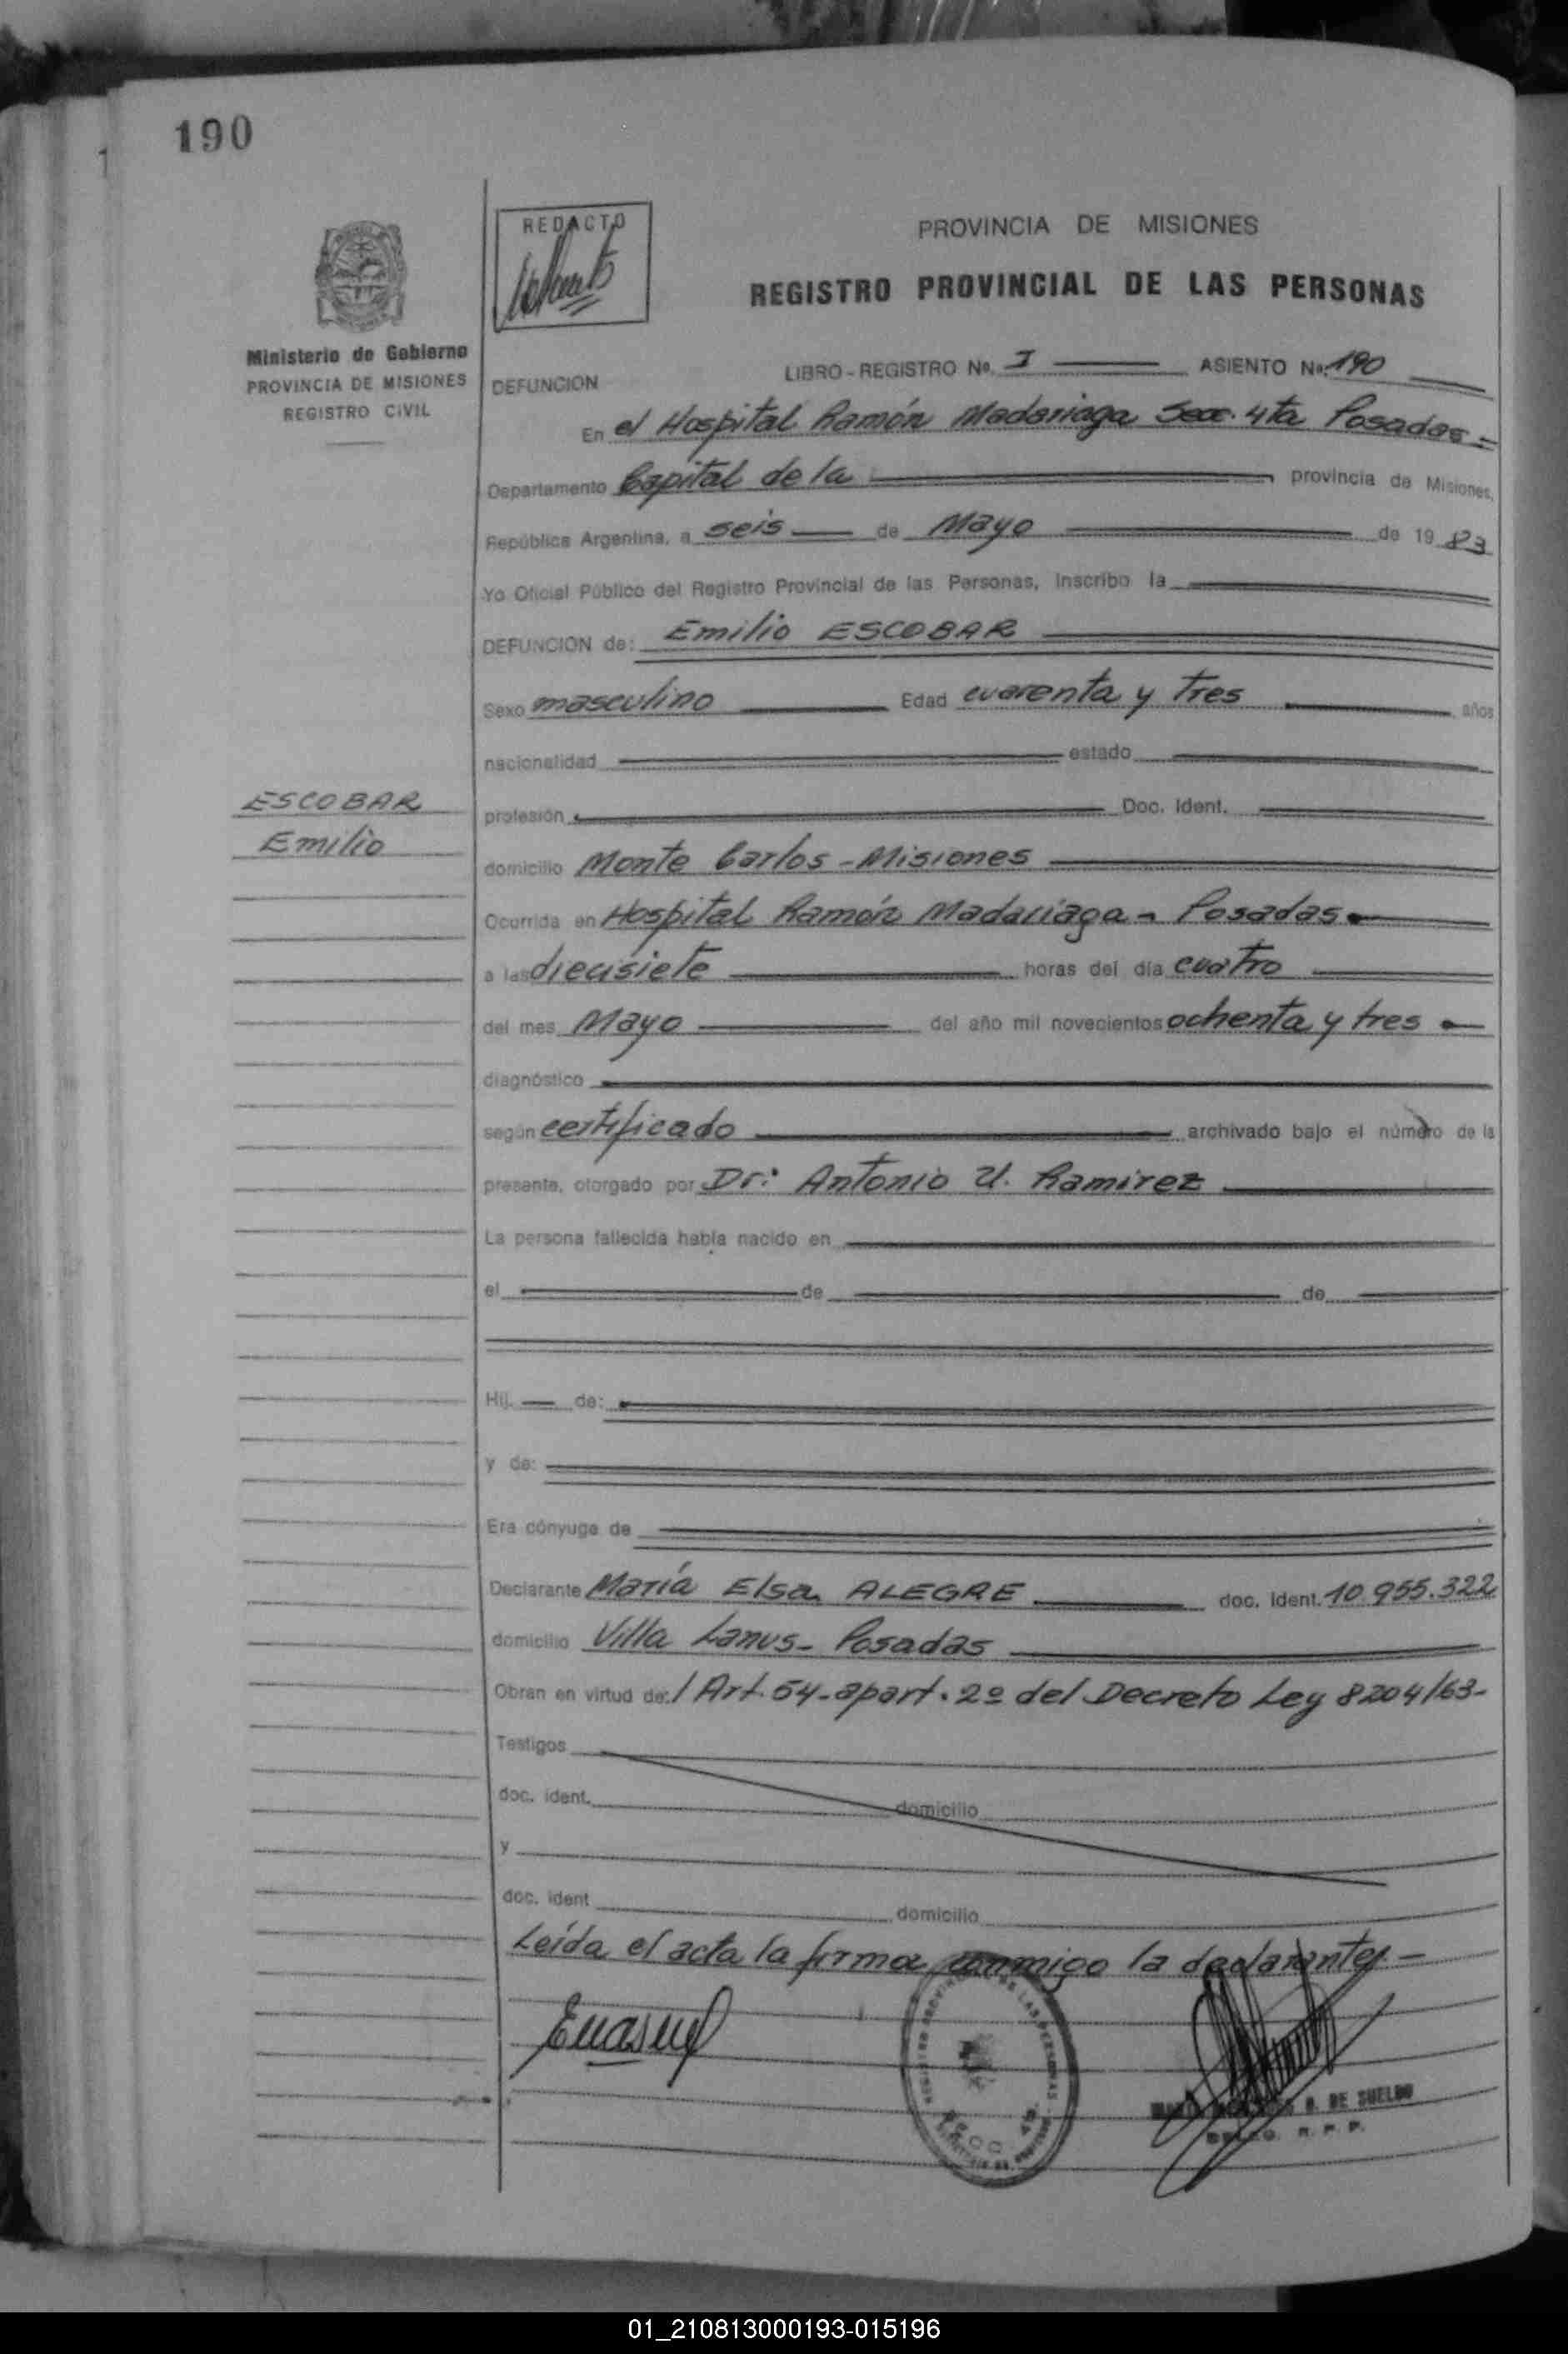 190
REDACTO
PROVINCIA DE MISIONES
REGISTRO PROVINCIAL DE LAS PERSONAS
Ministerio de Gobierno
PROVINCIA DE MISIONES
REGISTRO CIVIL
LIBRO - REGISTRO No. I ASIENTO No. 190
DEFUNCION
En el Hospital Ramón Madariaga Secc. 4ta Posadas =
Departamento Capital de la provincia de Misiones,
República Argentina, a seis de Mayo de 19 83
Yo Oficial Público del Registro Provincial de las Personas, inscribo la
DEFUNCION de: Emilio ESCOBAR
Sexo masculino Edad cuarenta y tres años
nacionalidad estado
ESCOBAR
Emilio
profesión Doc. Ident.
domicilio Monte Carlos - Misiones
Ocurrida en Hospital Ramón Madariaga - Posadas.
a las diecisiete horas del día cuatro
del mes Mayo del año mil novecientos ochenta y tres
diagnóstico
según certificado archivado bajo el número de la
presente, otorgado por Dr: Antonio U. Ramirez
La persona fallecida había nacido en
el de de
Hij. de:
y de:
Era cónyuge de
Declarante María Elsa ALEGRE doc. Ident. 10.955.322
domicilio Villa Lanus - Posadas
Obran en virtud de: / Art. 54 - apart. 2º del Decreto Ley 8204/63 -
Testigos
doc. ident. domicilio
y
doc. ident domicilio
Leída el acta la firma conmigo la declarante -
DE SUELDO
R. P. P.
01_210813000193-015196